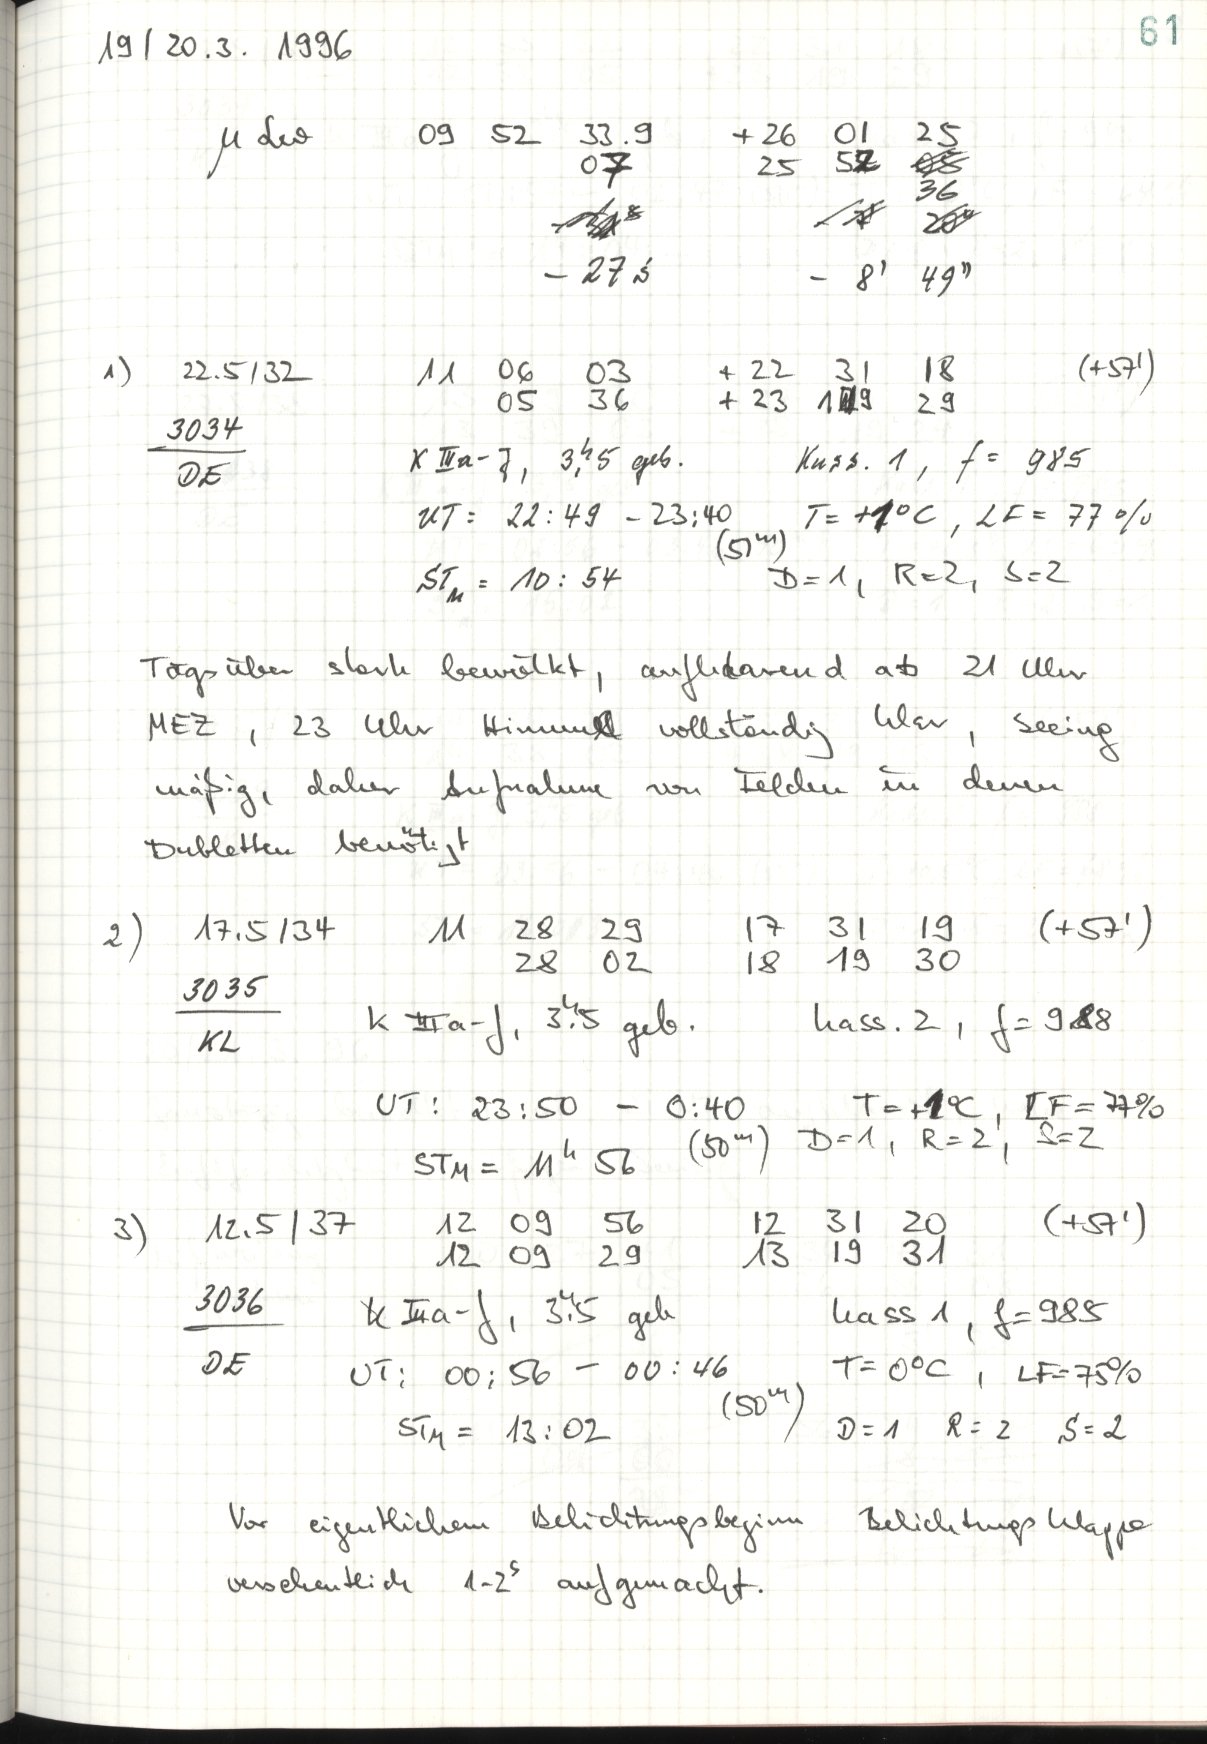 61
19/20.3. 1996
μ Leo 09 52 33.9 +26 01 25
07 25 52
36
- 27s - 8' 49"
1) 22.5/32 11 06 03 +22 31 18 (+57')
05 36 +23 19 29
3034
DE
K IIIa-J, 3h,5 geb. Kass. 1, f = 985
UT = 22:49 - 23:40 T = +1°C, LF = 77%
(51m)
STM = 10:54 D=1, R=2, S=2
Tagsüber stark bewölkt, aufklarend ab 21 Uhr
MEZ, 23 Uhr Himmel vollständig klar, Seeing
mäßig, daher Aufnahme von Felden in denen
Dubletten benötigt
2) 17.5/34 11 28 29 17 31 19 (+57')
28 02 18 19 30
3035
KL
K IIIa-J, 3h,5 geb. Kass. 2, f = 988
UT: 23:50 - 0:40 T = +1°C, LF = 77%
(50m) D=1, R=2, S=2
STM = 11h 56
3) 12.5/37 12 09 56 12 31 20 (+57')
12 09 29 13 19 31
3036
DE
K IIIa-J, 3h,5 geb Kass 1, f = 985
UT: 00:56 - 00:46 T = 0°C, LF = 75%
(50m)
STM = 13:02 D=1 R=2 S=2
Vor eigentlichem Belichtungsbeginn Belichtungsklappe
versehentlich 1-2s aufgemacht.